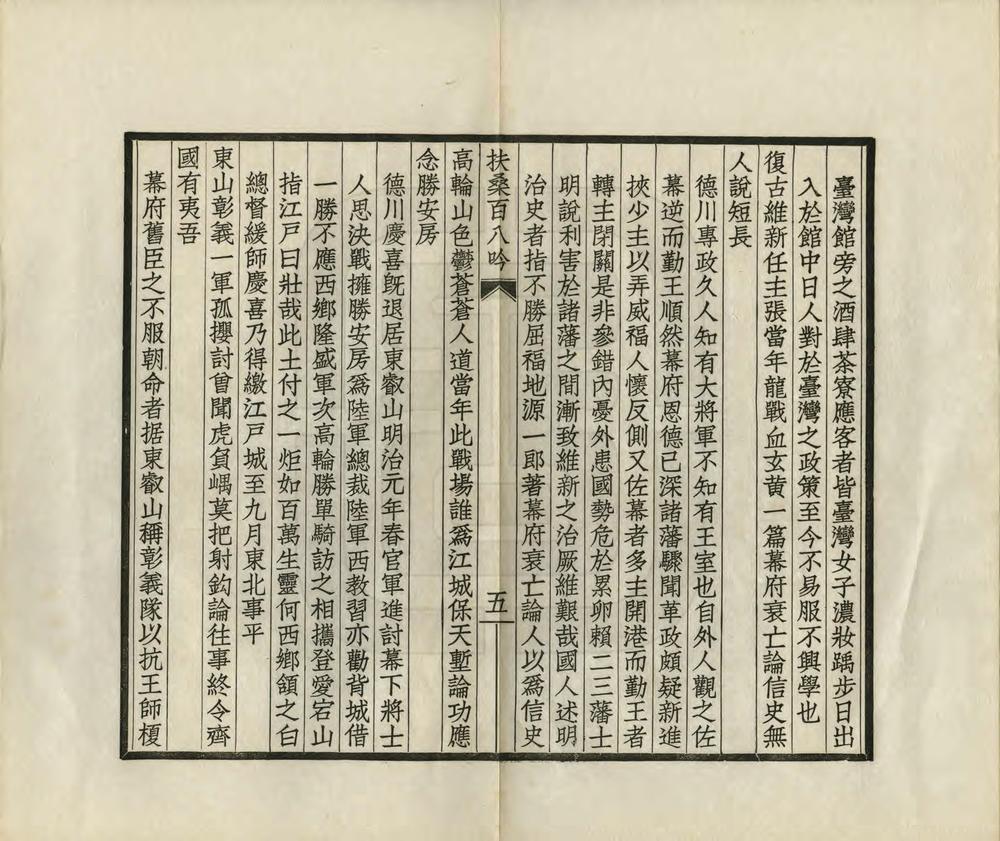 臺灣館旁之酒肆茶寮應客者皆臺灣女子濃妝踽步日出
入於館中日人對於臺灣之政策至今不易服不興學也
復古維新任主張當年龍戰血玄黃一篇幕府衰亡論信史無
人說短長
德川專政久人知有大將軍不知有王室也自外人觀之佐
幕逆而勤王順然幕府恩德已深諸藩驟聞革政頗疑新進
挾少主以弄威福人懷反側又佐幕者多主開港而勤王者
轉主閉關是非參錯內憂外患國勢危於累卵賴二三藩士
明說利害於諸藩之間漸致維新之治厥維艱哉國人述明
治史者指不勝屈福地源一郎著幕府衰亡論人以爲信史
扶桑百八吟
五
高輪山色鬱蒼蒼人道當年此戰場誰爲江城保天塹論功應
念勝安房
德川慶喜既退居東叡山明治元年春官軍進討幕下將士
人思決戰擁勝安房爲陸軍總裁陸軍西教習亦勸背城借
一勝不應西鄉隆盛軍次高輪勝單騎訪之相攜登愛宕山
指江戸曰壯哉此土付之一炬如百萬生靈何西鄉頷之白
總督緩師慶喜乃得繳江戸城至九月東北事平
東山彰義一軍孤攖討曾聞虎負嵎莫把射鈎論往事終令齊
國有夷吾
幕府舊臣之不服朝命者据東叡山稱彰義隊以抗王師榎